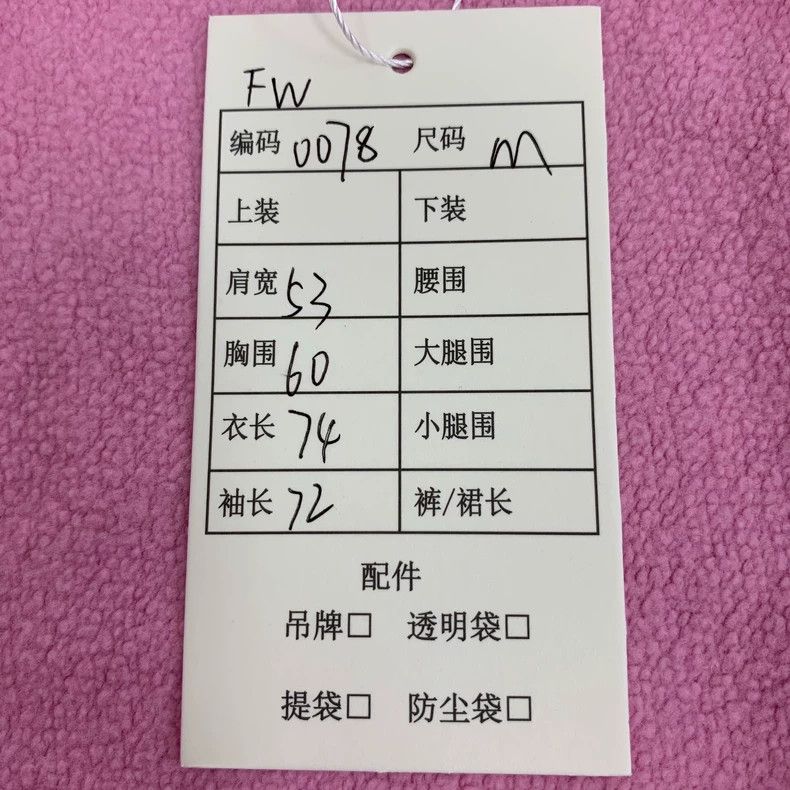 FW
编码 0078 尺码 M
上装 下装
肩宽 53 腰围
胸围 60 大腿围
衣长 74 小腿围
袖长 72 裤/裙长
配件
吊牌□ 透明袋□
提袋□ 防尘袋□